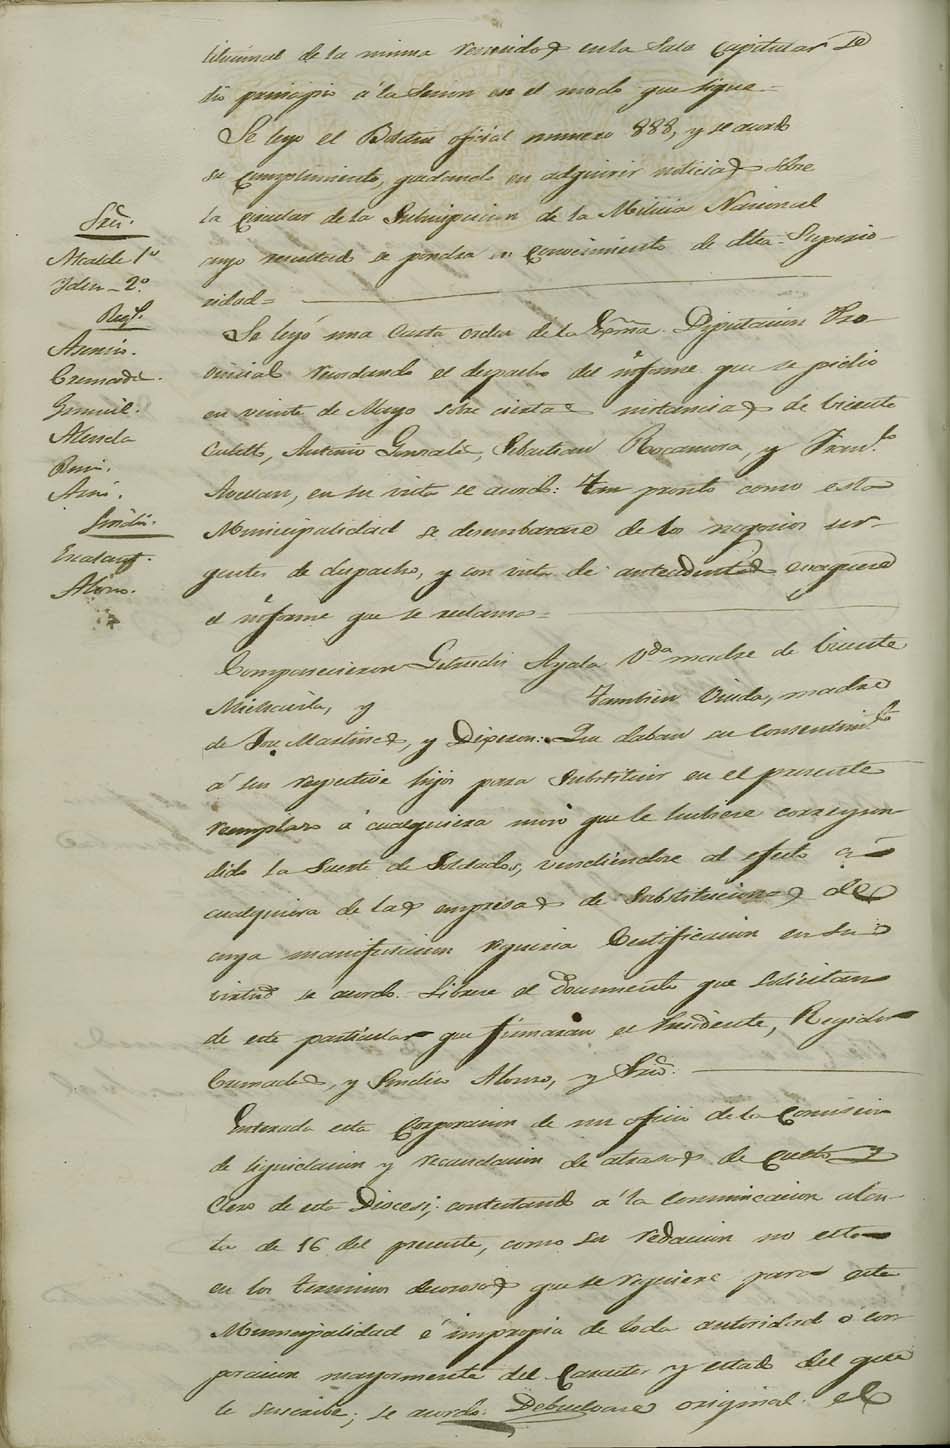 titucional de la misma reunidos en la Sala Capitular se
dió principio á la Sesion en el modo que sigue=
Se leyó el Boletin oficial numero 888, y se acordó
su cumplimiento, quedando en adquirir noticias sobre
la Circular de la Subinspeccion de la Milicia Nacional
cuyo resultado se pondra en conocimiento de dha. Superio-
ridad=
Se leyó una Carta orden de la Exma. Diputacion Pro-
vincial recordando el despacho del informe que se pidio
en veinte de Mayo sobre ciertas instancias de Vicente
Antonio Gonzalez, Sebastian Rocamora, y Fran.co
en su vista se acordó: Tan pronto como esta
Municipalidad se desembarace de los negocios ur-
gentes de despacho, y con vista de antecedentes evaquese
el informe que se reclama=
Comparecieron Getrudis Ayala V.da madre de Vicente
y tambien Viuda, madre
de Jose Martinez, y Dijeron: Que daban su consentim.to
á sus respective hijos para Substituir en el presente
reemplazo á cualquiera mozo que le hubiese correspon-
dido la Suerte de Soldados, vendiendose al efecto á
cualquiera de las empresas de Substitucion de
cuya manifestacion requeria Certificacion en su
virtud se acordó. Librese el documento que solicitan
de este particular que firmaran el Presidente, Regidor
Cremades, y Sindico Alonso, y Srio.
Enterada esta Corporacion de un oficio de la Comision
de liquidacion y recaudacion de atrasos de Culto y
Clero de esta Diocesi, contestando á la comunicacion aten-
ta de 16 del presente, como su redaccion no esta
en los terminos decorosos que se requiere para esta
Municipalidad é impropia de toda autoridad ó cor-
poracion mayormente del Caracter y estado del que
le suscribe; se acordó. Debuelvase original el
Sres.
Alcalde 1º
Yden - 2º
Reg.s
Asensio.
Cremades.
Almela
Sindic.
Escalant.
Alonso.